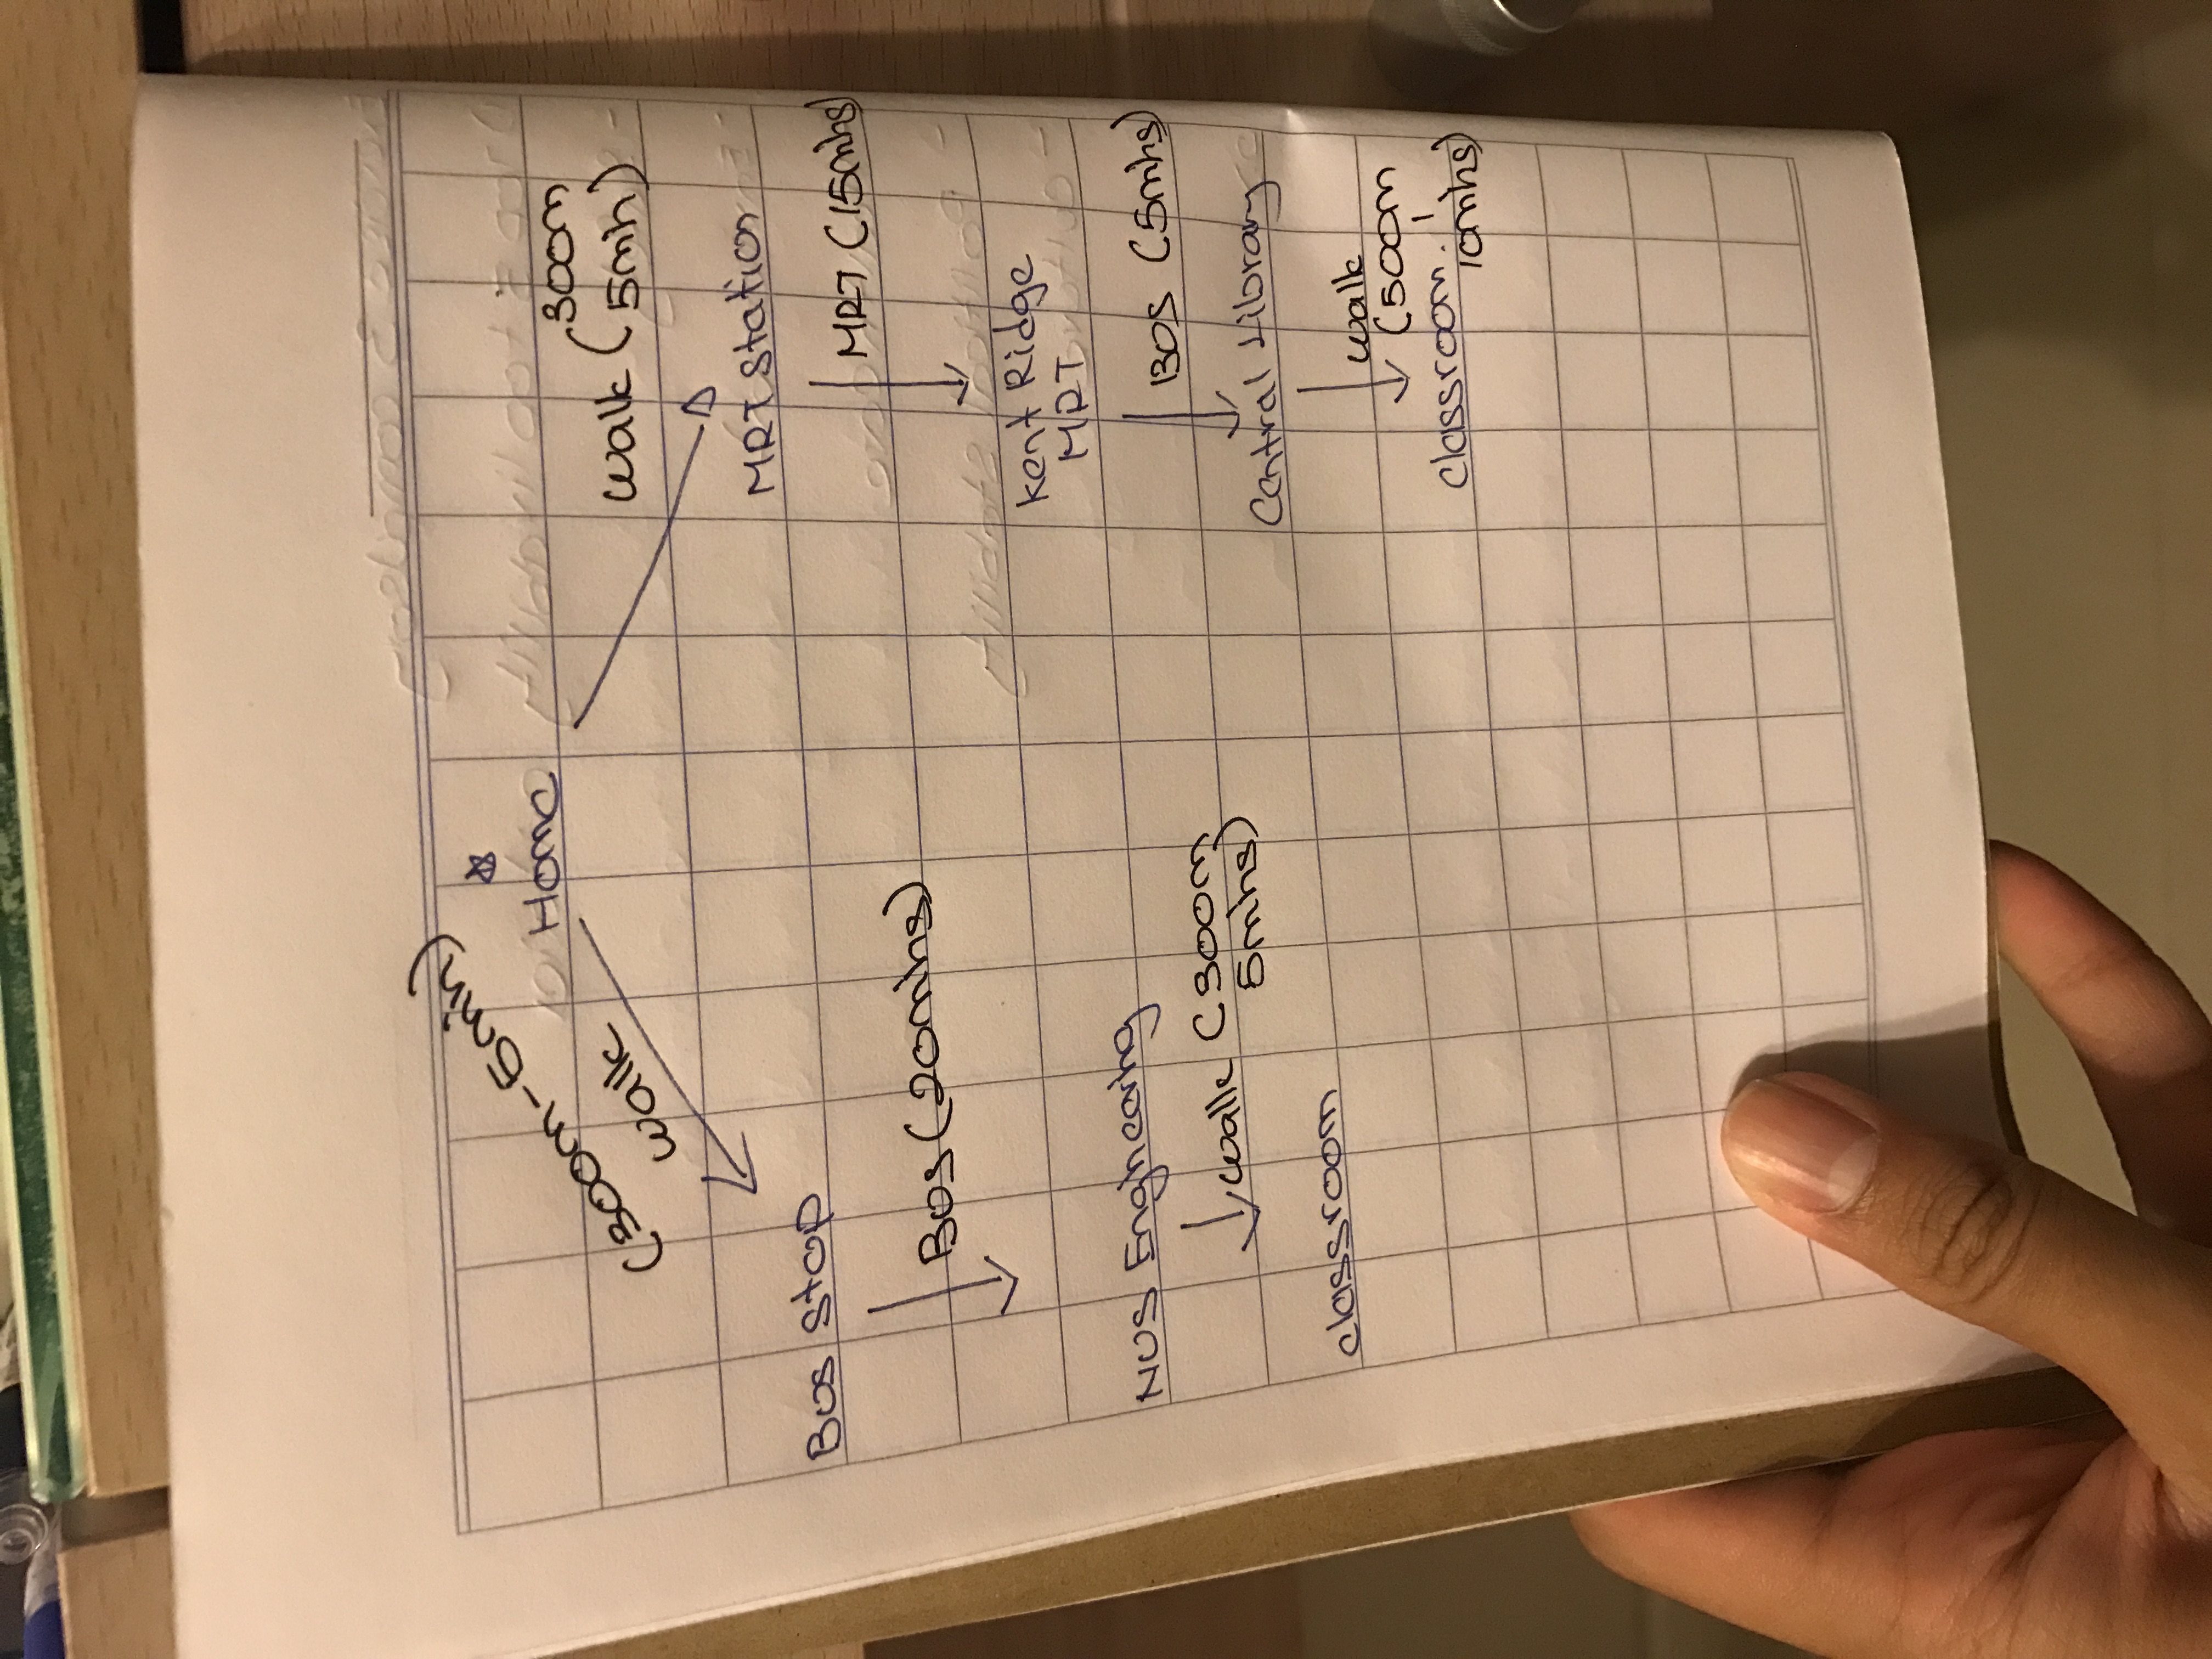 Home
(300m-5min)
walk
Bus Stop
Bus (20mins)
NUS Engineering
walk (300m
5mins)
classroom
300m
walk (5min)
MRT Station
MRT (15mins)
Kent Ridge
MRT
BUS (5mins)
Central Library
walk
(500m,
10mins)
classroom.